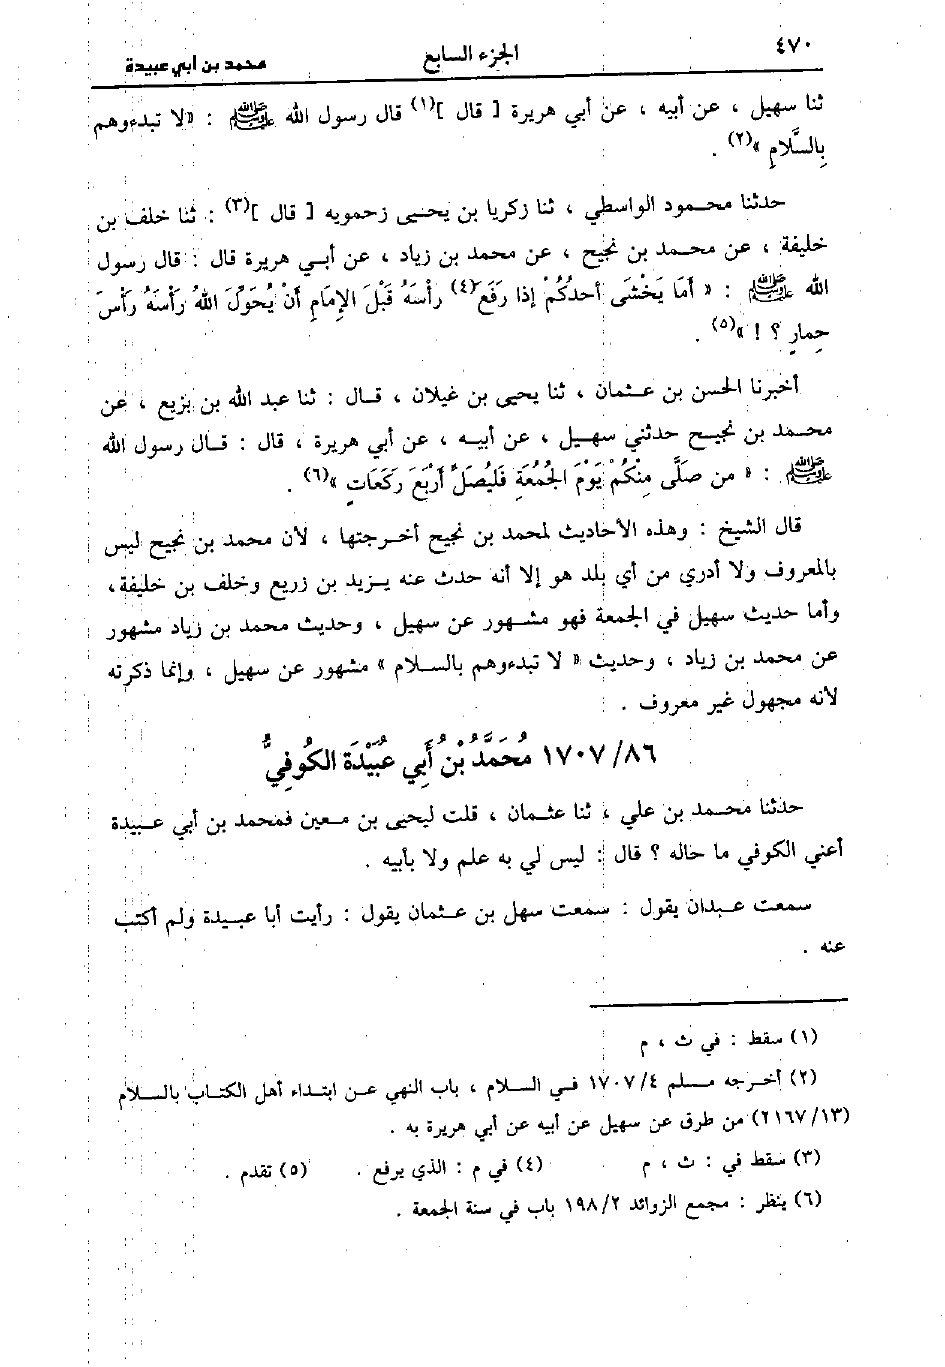 ٤٧٠ الجزء السابع محمد بن أبي عبيدة
ثنا سهيل ، عن أبيه ، عن أبي هريرة [ قال ](١) قال رسول الله ﷺ : «لا تبدءوهم
بِالسَّلامِ »(٢) .
حدثنا محمود الواسطي ، ثنا زكريا بن يحيى زحمويه [ قال ](٣) : ثنا خلف بن
خليفة ، عن محمد بن نجيح ، عن محمد بن زياد ، عن أبي هريرة قال : قال رسول
الله ﷺ : « أَمَا يَخْشَى أَحدُكُمْ إذا رَفَعَ(٤) رأْسَهُ قَبْلَ الإِمَامِ أَنْ يُحَوِّلَ اللهُ رَأْسَهُ رَأْسَ
حِمارٍ ؟ ! »(٥) .
أخبرنا الحسن بن عثمان ، ثنا يحيى بن غيلان ، قال : ثنا عبد الله بن بزيع ، عن
محمد بن نجيح حدثني سهيل ، عن أبيه ، عن أبي هريرة ، قال : قال رسول الله
ﷺ : « من صَلَّى مِنْكُمْ يَوْمَ الجُمُعَةِ فَليُصَلِّ أَرْبَعَ رَكَعَاتٍ »(٦) .
قال الشيخ : وهذه الأحاديث لمحمد بن نجيح أخرجتها ، لأن محمد بن نجيح ليس
بالمعروف ولا أدري من أي بلد هو إلا أنه حدث عنه يزيد بن زريع وخلف بن خليفة،
وأما حديث سهيل في الجمعة فهو مشهور عن سهيل ، وحديث محمد بن زياد مشهور
عن محمد بن زياد ، وحديث « لا تبدءوهم بالسلام » مشهور عن سهيل ، وإنما ذكرته
لأنه مجهول غير معروف .
١٧٠٧/٨٦ مُحَمَّدُ بْنُ أَبِي عُبَيْدَةَ الكُوفِيُّ
حدثنا محمد بن علي ، ثنا عثمان ، قلت ليحيى بن معين فمحمد بن أبي عبيدة
أعني الكوفي ما حاله ؟ قال : ليس لي به علم ولا بأبيه .
سمعت عبدان يقول : سمعت سهل بن عثمان يقول : رأيت أبا عبيدة ولم أكتب
عنه .
(١) سقط : في ث ، م
(٢) أخرجه مسلم ١٧٠٧/٤ في السلام ، باب النهي عن ابتداء أهل الكتاب بالسلام
(٢١٦٧/١٣) من طرق عن سهيل عن أبيه عن أبي هريرة به .
(٣) سقط في : ث ، م (٤) في م : الذي يرفع . (٥) تقدم .
(٦) ينظر : مجمع الزوائد ١٩٨/٢ باب في سنة الجمعة .